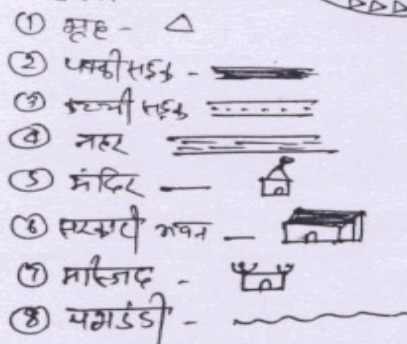 ① गृह -
② पक्की सड़क -
③ कच्ची सड़क
④ नहर
⑤ मंदिर —
⑥ सरकारी भवन —
⑦ मस्जिद -
⑧ पगडंडी -